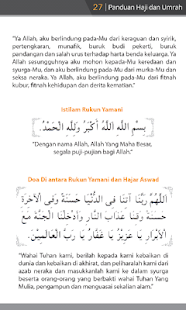 27 | Panduan Haji dan Umrah
"Ya Allah, aku berlindung pada-Mu dari keraguan dan syirik,
pertengkaran, munafik, buruk budi pekerti, buruk
pandangan dan tempat kembali, dan aku berlindung pada-
Mu dari cobaan yang menimpa terhadap harta benda keluarga. Ya
Allah sesungguhnya aku mohon kepada-Mu keredaan dan
syurga-Mu, dan aku berlindung pada-Mu dari murka-Mu dan
seksa neraka. Ya Allah, aku berlindung pada-Mu dari fitnah
kubur, fitnah kehidupan dan derita kematian."
Istilam Rukun Yamani
بِسْمِ اللهِ اللهُ أَكْبَرُ وَلِلّٰهِ الْحَمْدُ.
"Dengan nama Allah, Allah Yang Maha Besar,
segala puji-pujian bagi Allah"
Doa Di antara Rukun Yamani dan Hajar Aswad
اَللّٰهُمَّ رَبَّنَا آتِنَا فِي الدُّنْيَا حَسَنَةً وَفِي الْآخِرَةِ
حَسَنَةً وَقِنَا عَذَابَ النَّارِ وَأَدْخِلْنَا الْجَنَّةَ مَعَ
الْأَبْرَارِ يَا عَزِيْزُ يَا غَفَّارُ يَا رَبَّ الْعَالَمِيْنَ.
"Wahai Tuhan kami, berilah kepada kami kebaikan di
dunia dan kebaikan di akhirat, dan peliharalah kami dari
azab neraka dan masukkanlah kami ke dalam syurga
beserta orang-orang yang berbakti wahai Tuhan Yang
Mulia, pengampun dan menguasai sekalian alam."